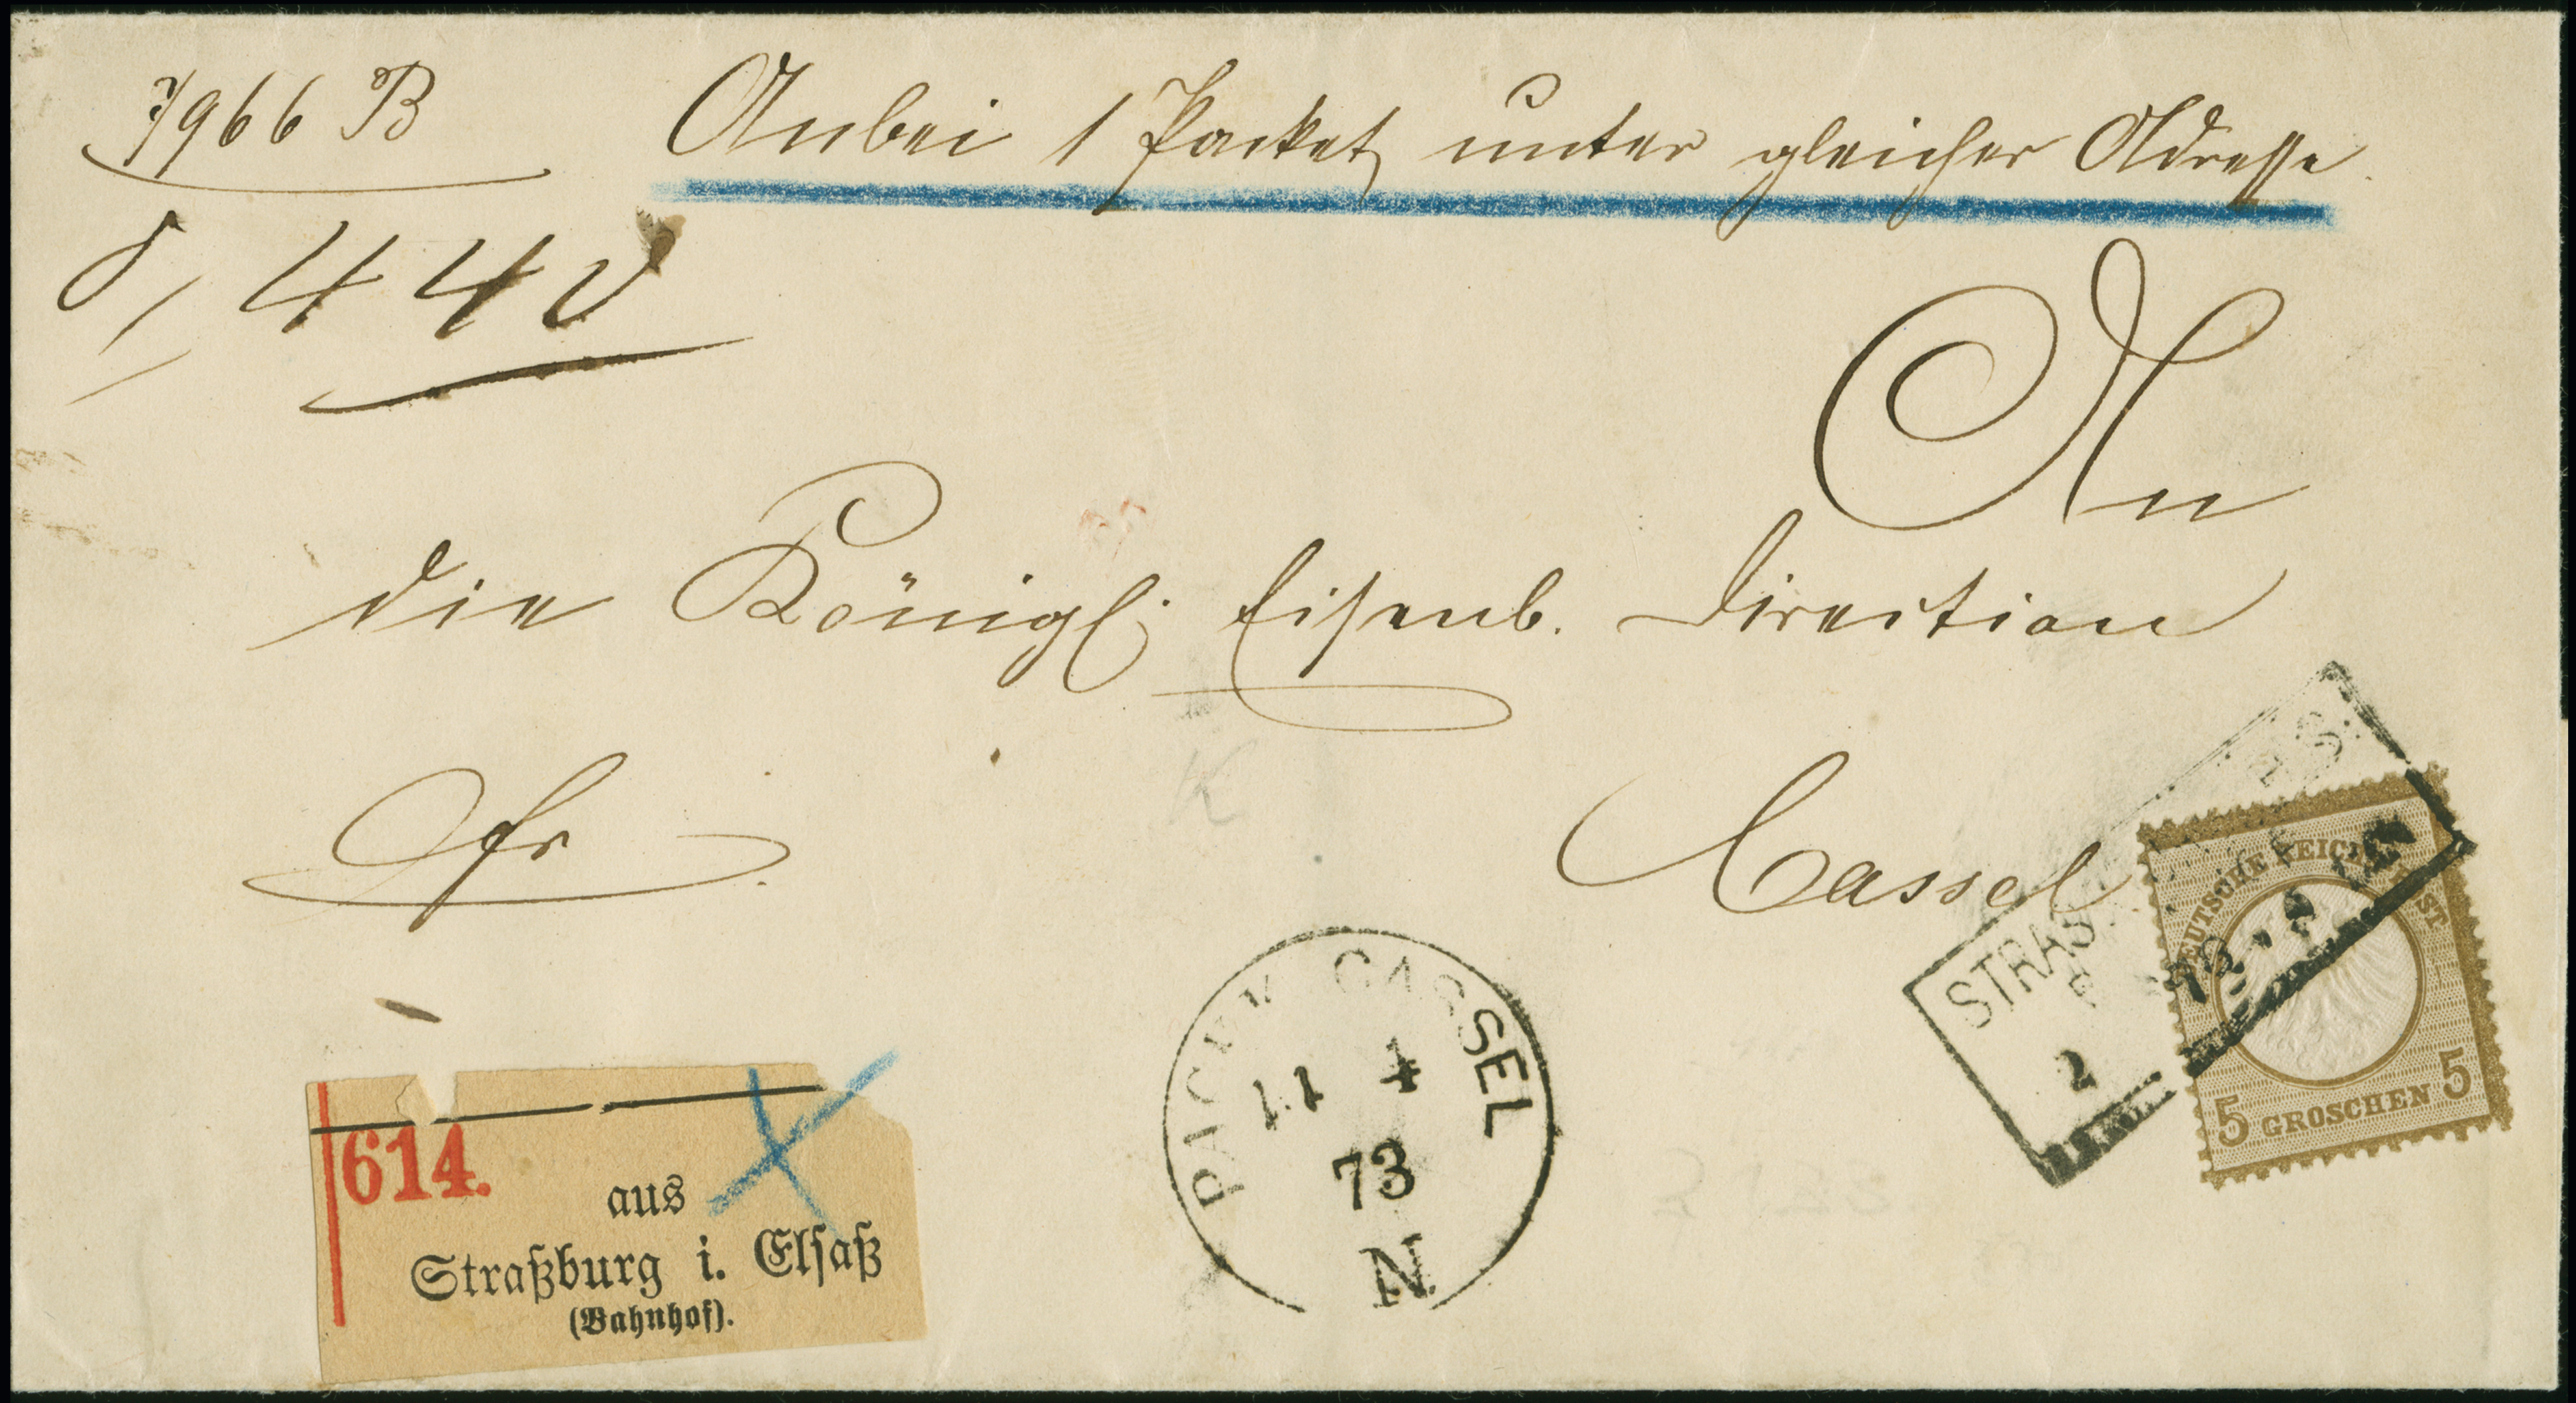 7966 B
Anbei 1 Packet unter gleicher Adresse
An
die Königl. Eisenb. Direction
fr
Cassel
614.
aus
Straßburg i. Elſaß
(Bahnhof).
CASSEL
11 4
73
N
STRAS
2
DEUTSCHE REICHS POST
5 GROSCHEN 5